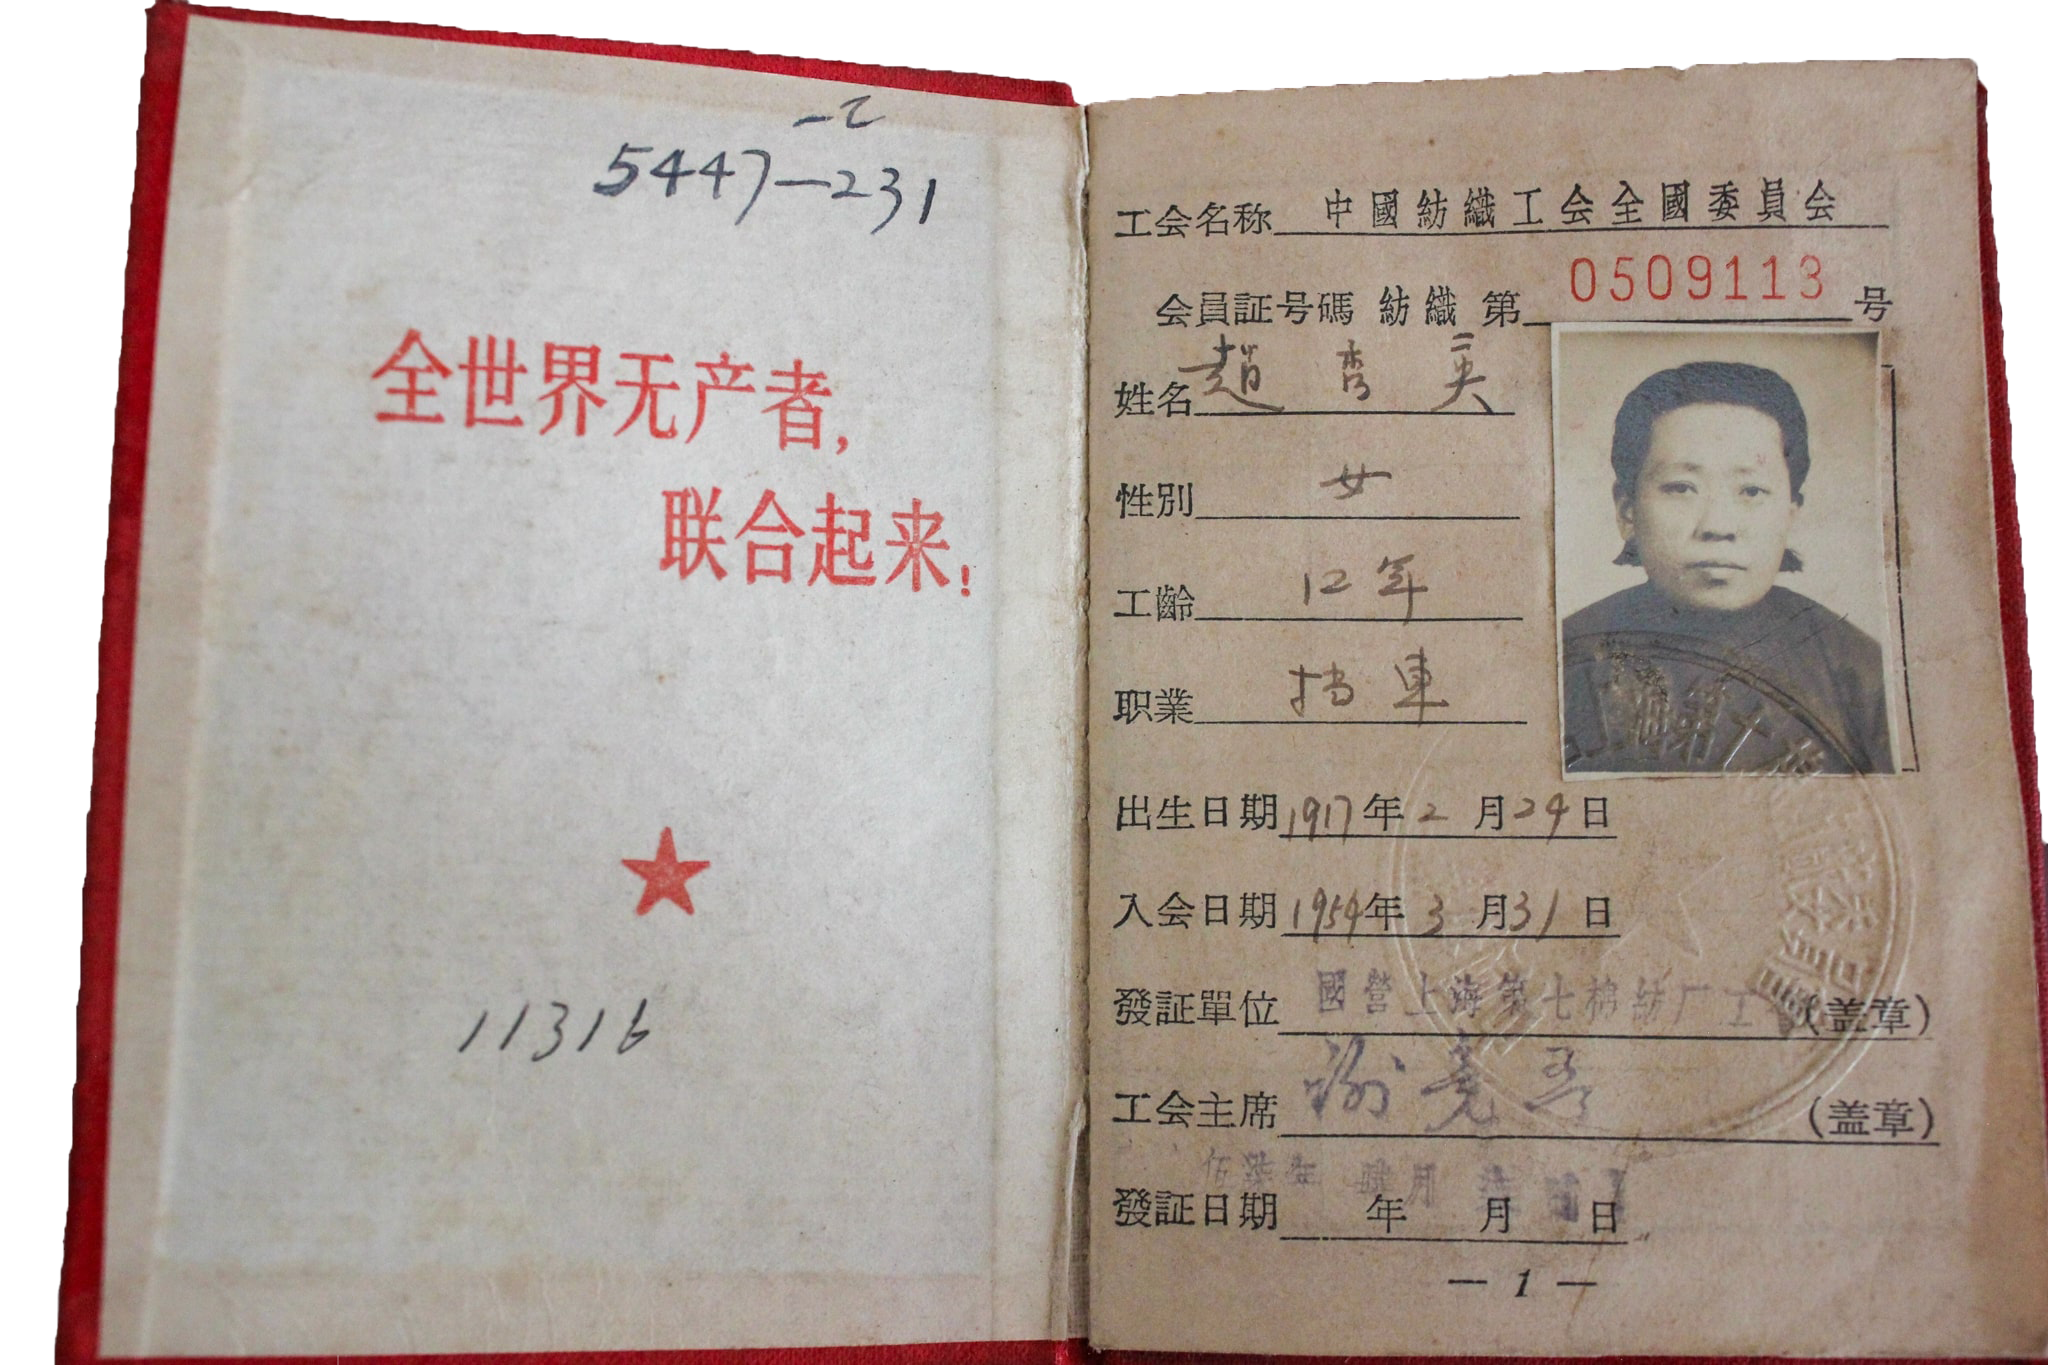 5447-231
全世界无产者，
联合起来！
11316
工会名称 中國紡織工会全國委員会
会員証号碼 紡織 第 0509113 号
姓名 趙 英
性別 女
工齡 12年
职業 挡車
出生日期 1917年2月24日
入会日期 1954年3月31日
發証單位 國营上海第七棉紡厂工 (盖章)
工会主席 謝 (盖章)
伍柒年 月
發証日期 年 月 日
— 1 —